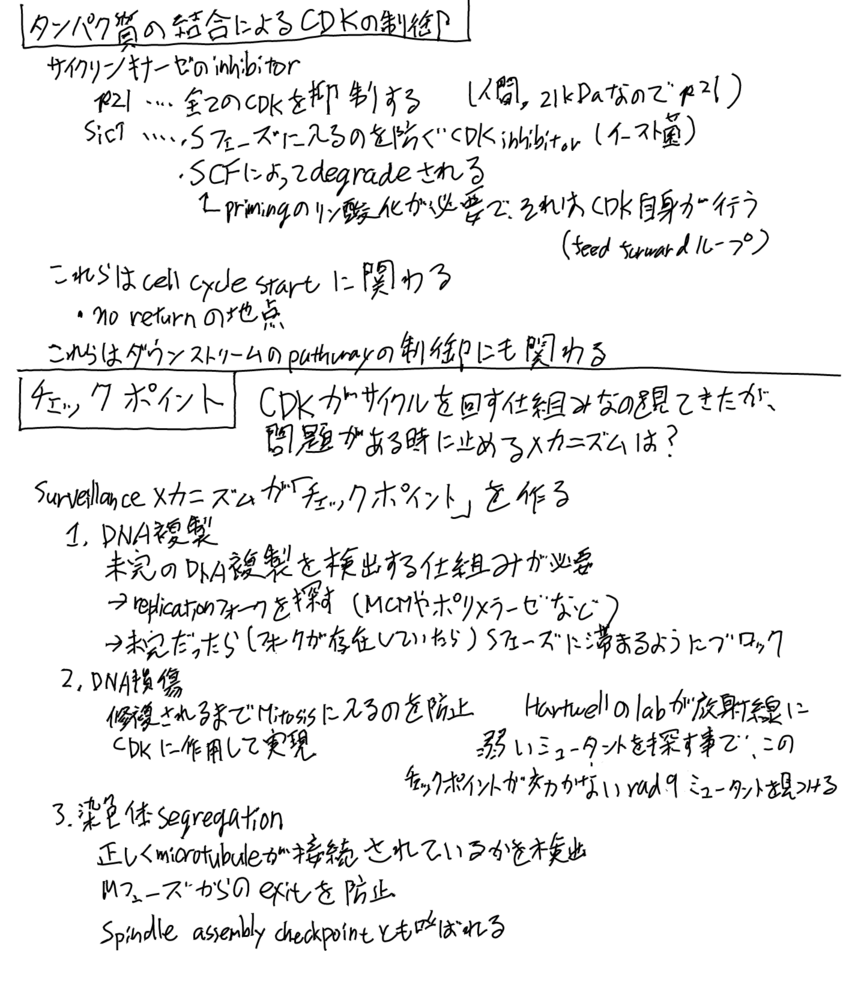 タンパク質の結合によるCDKの制御
サイクリンキナーゼのinhibitor
p21 ‥‥ 全てのCDKを抑制する (人間, 21kDaなのでp21)
Sic1 ‥‥ ・Sフェーズに入るのを防ぐCDK inhibitor (イースト菌)
・SCFによってdegradeされる
↳ primingのリン酸化が必要で、それはCDK自身が行う
(feed forwardループ)
これらはcell cycle startに関わる
・no returnの地点
これらはダウンストリームのpathwayの制御にも関わる
チェックポイント CDKがサイクルを回す仕組みなのを見てきたが、
問題がある時に止めるメカニズムは?
Surveillanceメカニズムが「チェックポイント」を作る
1. DNA複製
未完のDNA複製を検出する仕組みが必要
→replicationフォークを探す (MCMやポリメラーゼなど)
→未完だったら(フォークが存在していたら) Sフェーズに滞まるようにブロック
2. DNA損傷
修復されるまでMitosisに入るのを防止 Hartwellのlabが放射線に
CDKに作用して実現 弱いミュータントを探す事で、この
チェックポイントが効かないrad9ミュータントを見つける
3. 染色体segregation
正しくmicrotubuleが接続されているかを検出
Mフェーズからのexitを防止
Spindle assembly checkpointとも呼ばれる